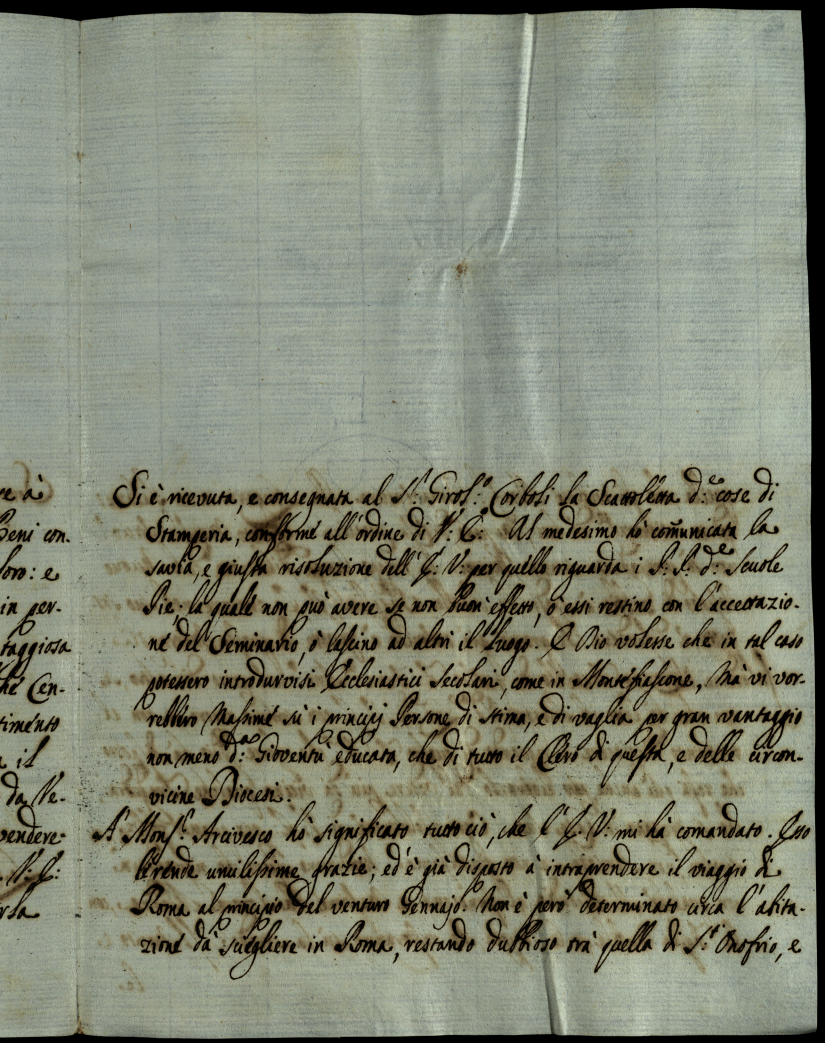 te à
Beni con-
loro: e
in per-
taggiosa
ché Cen-
timénto
a il
da Ve-
vendere
V: E:
rla
Si è ricevuta, e consegnata al S.r Girol.o Corboli la Scattolétta d.e cose di
Stamperia, conformé all'ordine di V: E: Al medesimo hò comunicata la
savia, e giusta risoluzione dell' E: V: per quéllo riguarda i P: P: d.e Scuole
Pie; la qualé non può avere se non buon' effetto, ò essi restino con l'accettazio-
né del Séminario, ò lascino ad altri il luogo. E Dio volesse che in tal caso
potessero introdurvisi Ecclesiastici Secolari, come in Montéfiascone, Mà vi vor-
rebbéro Massimé sù i principj Persone di stima, e di vaglia per gran vantaggio
non meno d.a Gioventù educata, che di tutto il Clero di questa, e delle circon-
vicine Diocesi.
A' Mons.r Arcivesco hò significato tutto ciò, che l' E: V: mi hà comandato. Esso
le rénde umilissime grazie; ed' è già disposto à intraprendere il viaggio di
Roma al principio del venturo Gennajo. Non è però determinato circa l'abita-
zioné dà scégliere in Roma, restando dubbioso trà quella di S.t Onofrio, e